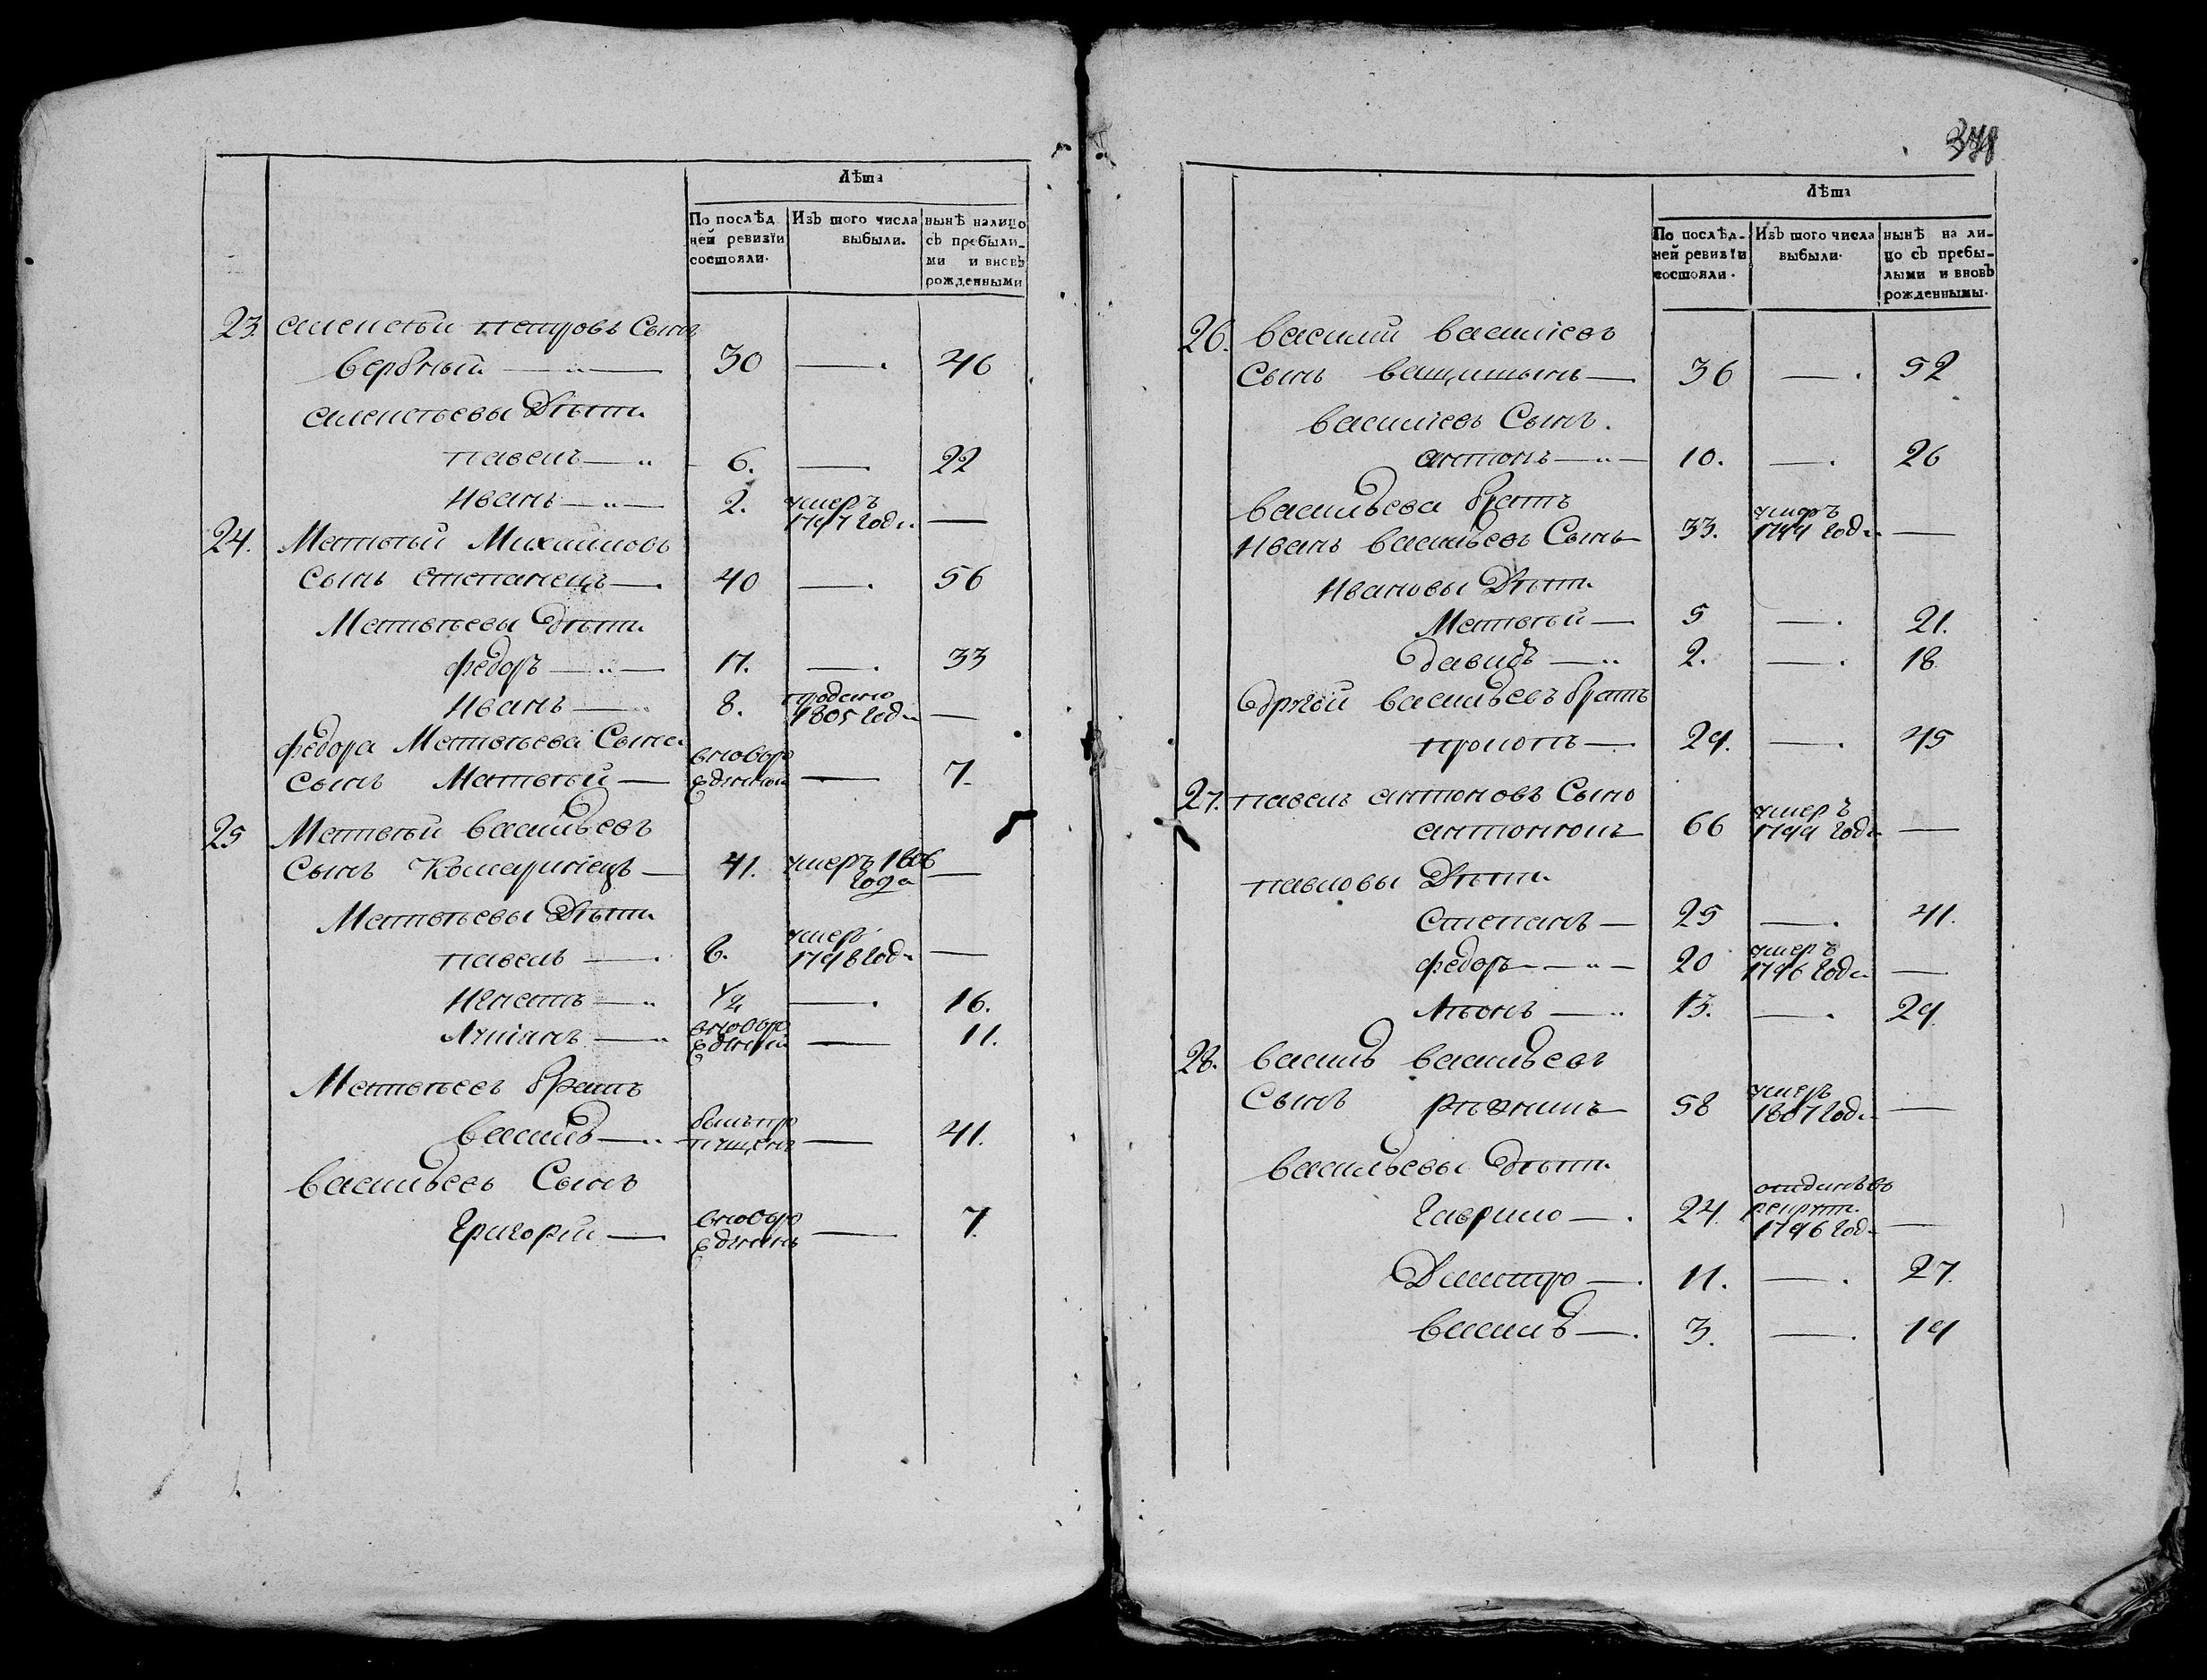 Лѣта
По послѣд
ней ревизїи
состояли.
Изъ того числа
выбыли.
нынѣ налицо
съ прѣбыли-
ми и вновь
рожденными
23. алексѣй петровъ Сынъ
вербный 30 — 46
алексѣевы Дѣти
павелъ 6. — 22
Иванъ 2. умеръ
1797 года —
24. Матвѣй Михайловъ
Сынъ степанецъ 40 — 56
Матвѣевы дѣти
федоръ 17. — 33
Иванъ 8. проданъ
1805 года —
федора Матвѣева Сына
Сынъ Матвѣй — вновьро
жденный — 7.
25 Матвѣй васильевъ
Сынъ Комарницъ — 41. умеръ 1806
года —
Матвѣевы Дѣти
павелъ — 6. умеръ
1798 года —
Игнатъ 1/2 — 16.
Лукіанъ вновьро
жденный — 11.
Матвѣевъ братъ
василь былъ про
пущенъ — 41.
васильевъ Сынъ
Григорій — вновьро
жденнъ — 7.
Лѣта
По послѣд-
ней ревизїи
состояли.
Изъ того числа
выбыли.
нынѣ на ли-
цо съ пребы-
лыми и вновь
рожденными.
26. василій василіевъ
Сынъ ващишынъ — 36 — 52
василіевъ Сынъ.
антонъ 10. — 26
васильева братъ
Иванъ васильевъ Сынъ 33. умеръ
1799 года —
Ивановы Дѣти
Матвѣй — 5 — 21.
давидъ 2. — 18
другой васильевъ братъ
прокопъ — 29. — 45
27. павелъ антоновъ Сынъ
антонюкъ 66 умеръ
1799 года —
павловы Дѣти
Степанъ — 25 — 41.
федоръ 20 умеръ
1796 года —
Лѣонъ 13. — 29.
28. василь васильевъ
Сынъ 58 умеръ
1807 года —
васильевы дѣти
Гаврило — 24. отданъ въ
рекруты
1796 года —
Дмитро — 11. — 27.
василь — 3. — 19